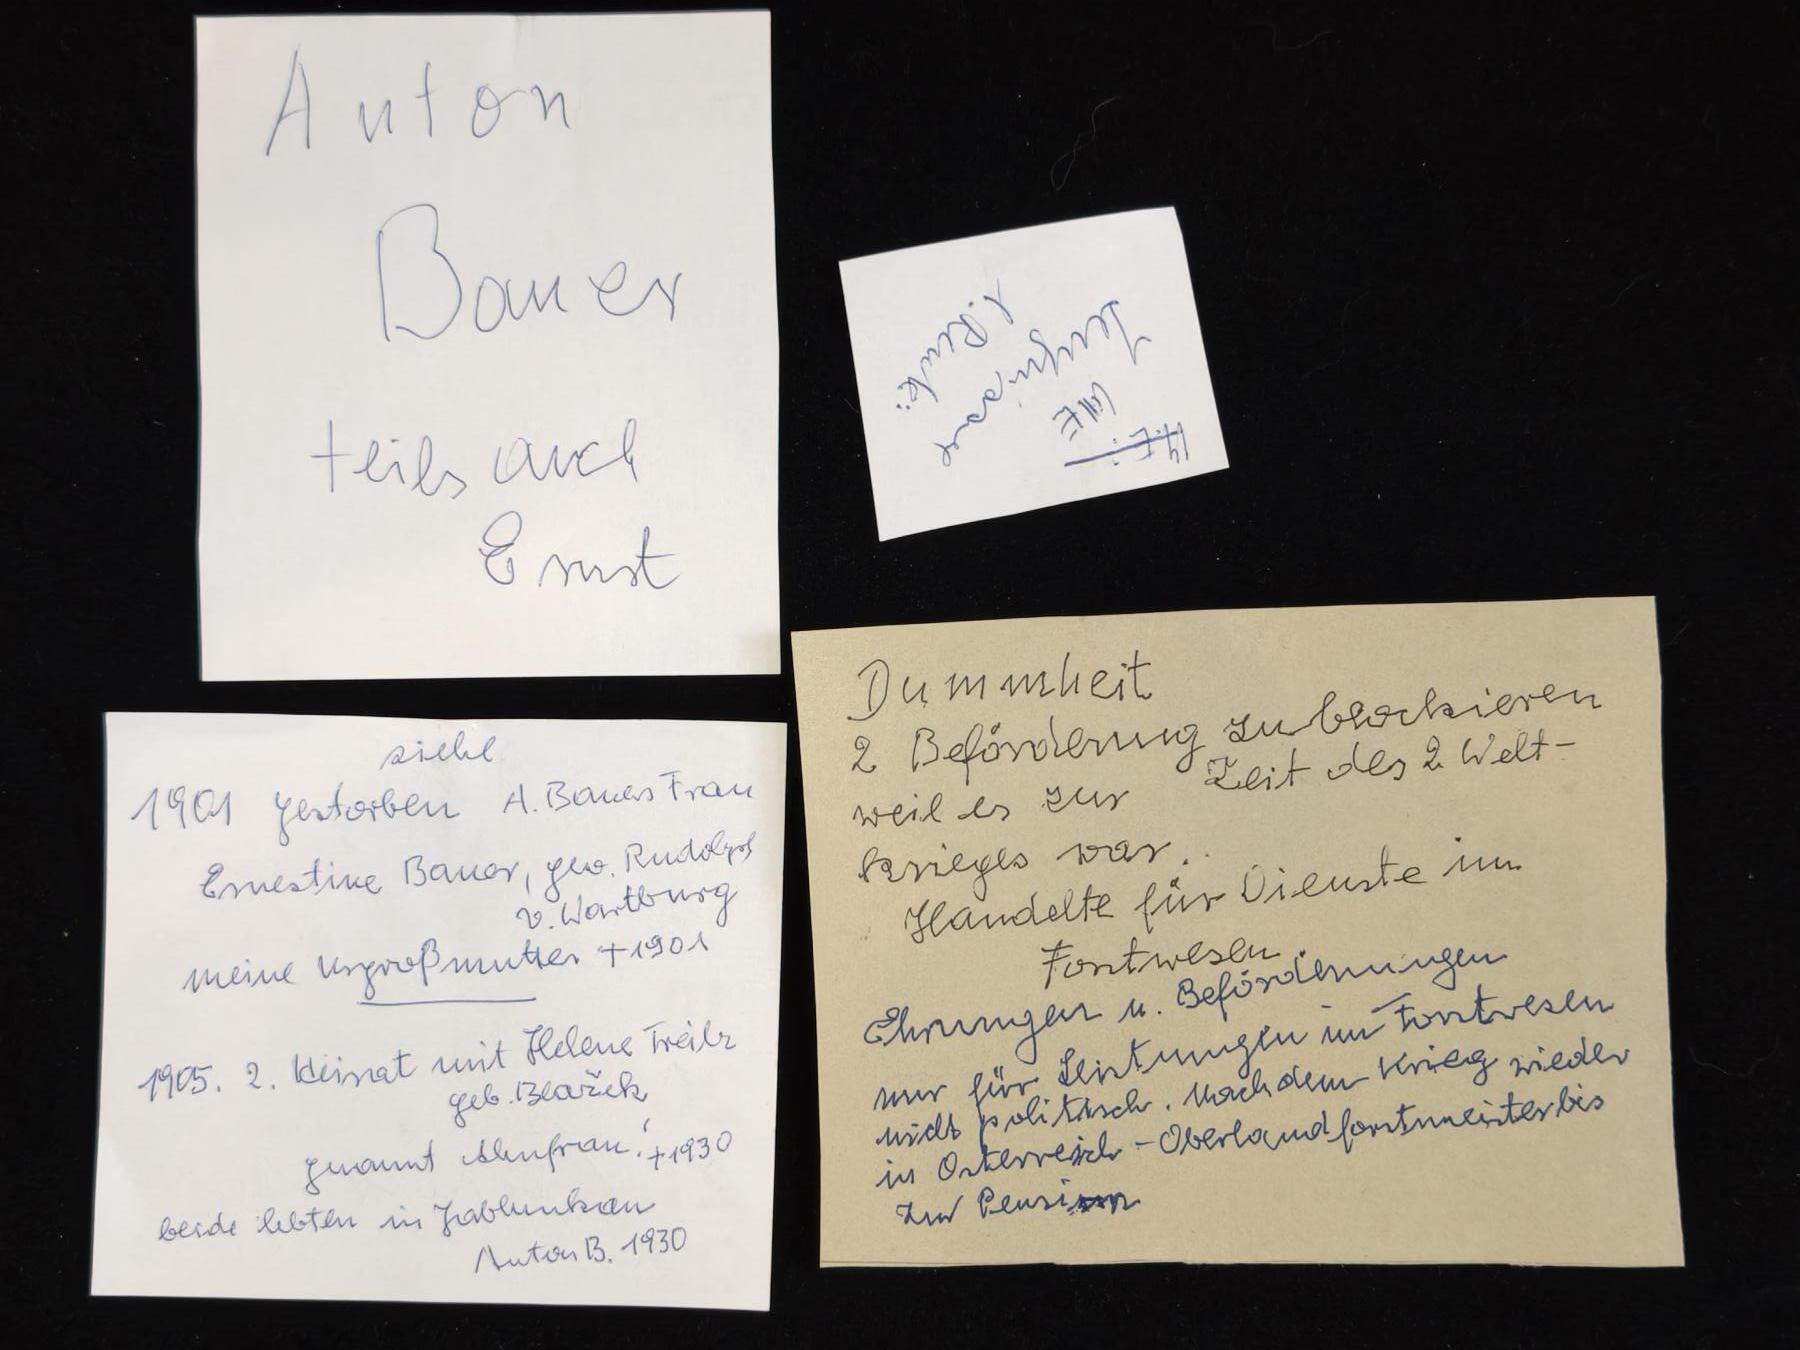 Anton
Bauer
teils auch
Ernst
siehe
1901 gestorben A. Bauers Frau
Ernestine Bauer, gew. Rudolph
v. Wartburg
meine Urgroßmutter +1901
1905. 2. Heirat mit Helene
geb. Blažek
genannt Ahnfrau! +1930
beide lebten in Jablunkau
Anton B. 1930
Dummheit
2 Beförderung zu blockieren
weil es zur Zeit des 2. Welt-
krieges war.
Handelte für Dienste im
Forstwesen
Ehrungen u. Beförderungen
nur für Leistungen im Forstwesen
nicht politisch. Nach dem Krieg wieder
in Österreich - Oberlandforstmeister bis
zur Pension